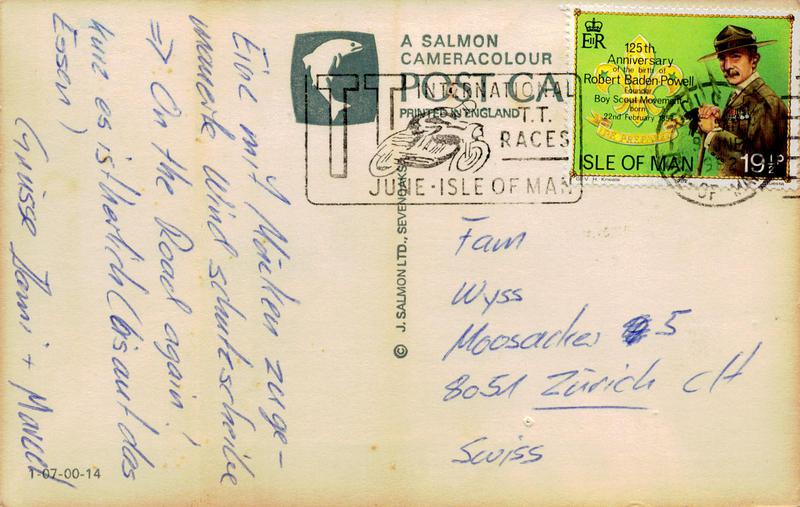 Eine mit Mücken zuge-
mauerte Windschutzscheibe
=> On the Road again!
kurz es ist herlich (bis auf das
Essen)
Grüsse Domi + Marcel
1-07-00-14
A SALMON
CAMERACOLOUR
POST CA
PRINTED IN ENGLAND
© J. SALMON LTD., SEVENOAKS
TT INTERNATIONAL
T.T.
RACES
JUNE · ISLE OF MAN
EIIR
125th
Anniversary
of the birth of
Robert Baden-Powell
Founder
Boy Scout Movement
Born
22nd February 1857
BE PREPARED
ISLE OF MAN 19½P
Fam
Wyss
Moosacker 5
8051 Zürich CH
Swiss